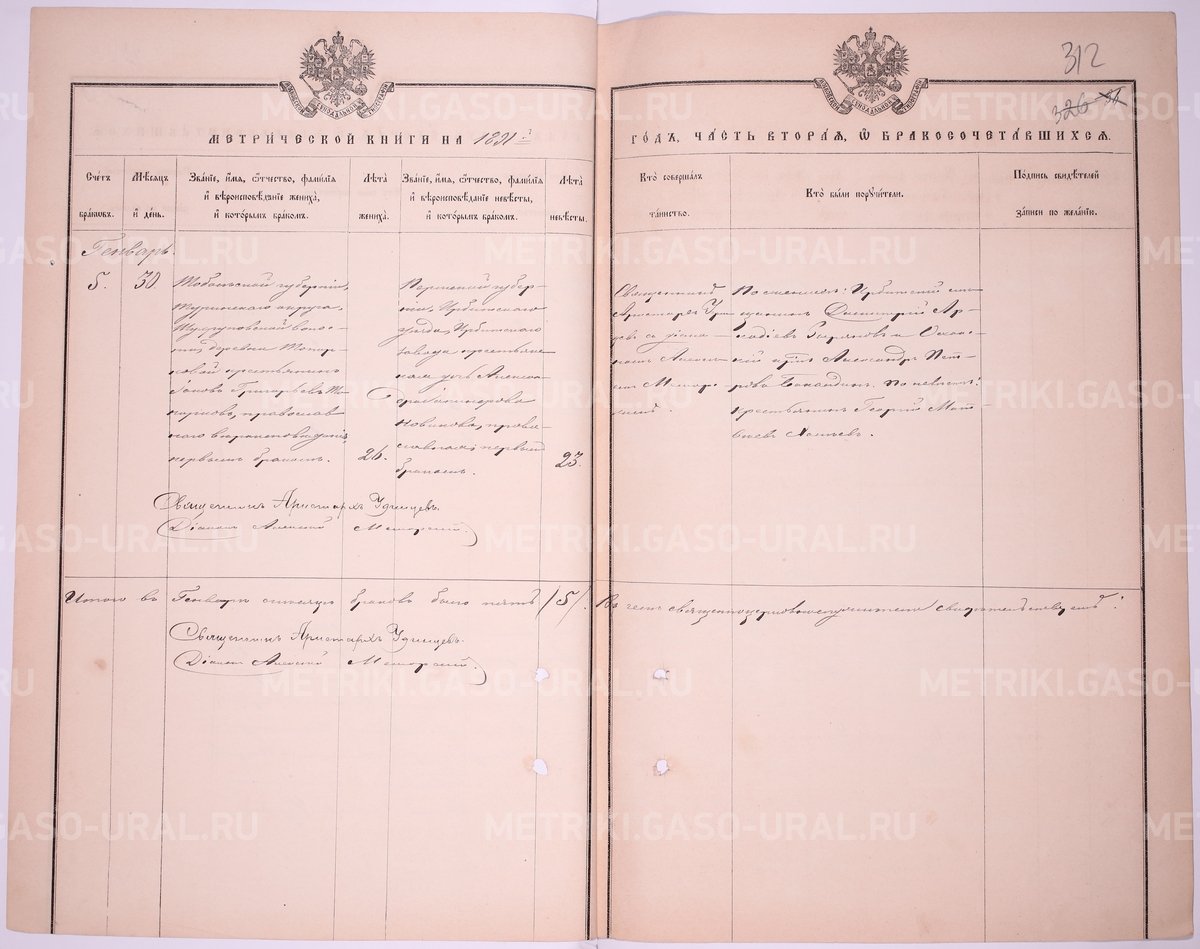 312
326
МЕТРИ́ЧЕСКОЙ КНИ́ГИ НА 1891 й
ГО́ДЪ, ЧА́СТЬ ВТОРА́Я, Ѡ БРАКОСОЧЕТА́ВШИХСЯ.
Сче́тъ бра́ковъ.
Мѣ́сяцъ и де́нь.
Зва́ніе, и́мя, ѻ́тчество, фами́лія
и вѣроисповѣ́даніе жениха́,
и кото́рымъ бра́комъ.
Лѣ́та жениха́.
Зва́ніе, и́мя, ѻ́тчество, фами́лія
и вѣроисповѣ́даніе невѣ́сты,
и кото́рымъ бра́комъ.
Лѣ́та невѣ́сты.
Кто̀ соверша́лъ
та́инство.
Кто̀ бы́ли порꙋчи́тели.
По́дпись свидѣ́телей
за́писи по жела́нію.
Генварь.
5.
30.
Тобольской губерніи,
Туринскаго округа,
волос-
ти, деревни
крестьянинъ
Іаковъ Григорьевъ
православ
наго вѣроисповѣданія,
первымъ бракомъ.
26.
Пермской губер-
ніи, Ирбитскаго
уѣзда, Ирбитскаго
завода крестьянс-
кая дочь Алексан-
дра
Новикова, право-
славная, первымъ
бракомъ.
23.
Священникъ
Аристархъ Уди-
цевъ съ діако-
номъ Алексі-
емъ
По женихѣ: Ирбитскій
Димитрій Ар-
кадіевъ и
Александръ Пет-
ровъ По невѣстѣ:
крестьянинъ Георгій Мат-
вѣевъ
Священникъ Аристархъ Удинцевъ.
Діаконъ Алексій
Итого въ Генварѣ мѣсяцѣ браковъ было пять /5/. Въ чемъ свидѣтельствуемъ:
Священникъ Аристархъ Удинцевъ.
Діаконъ Алексій
METRIKI.GASO-URAL.RU